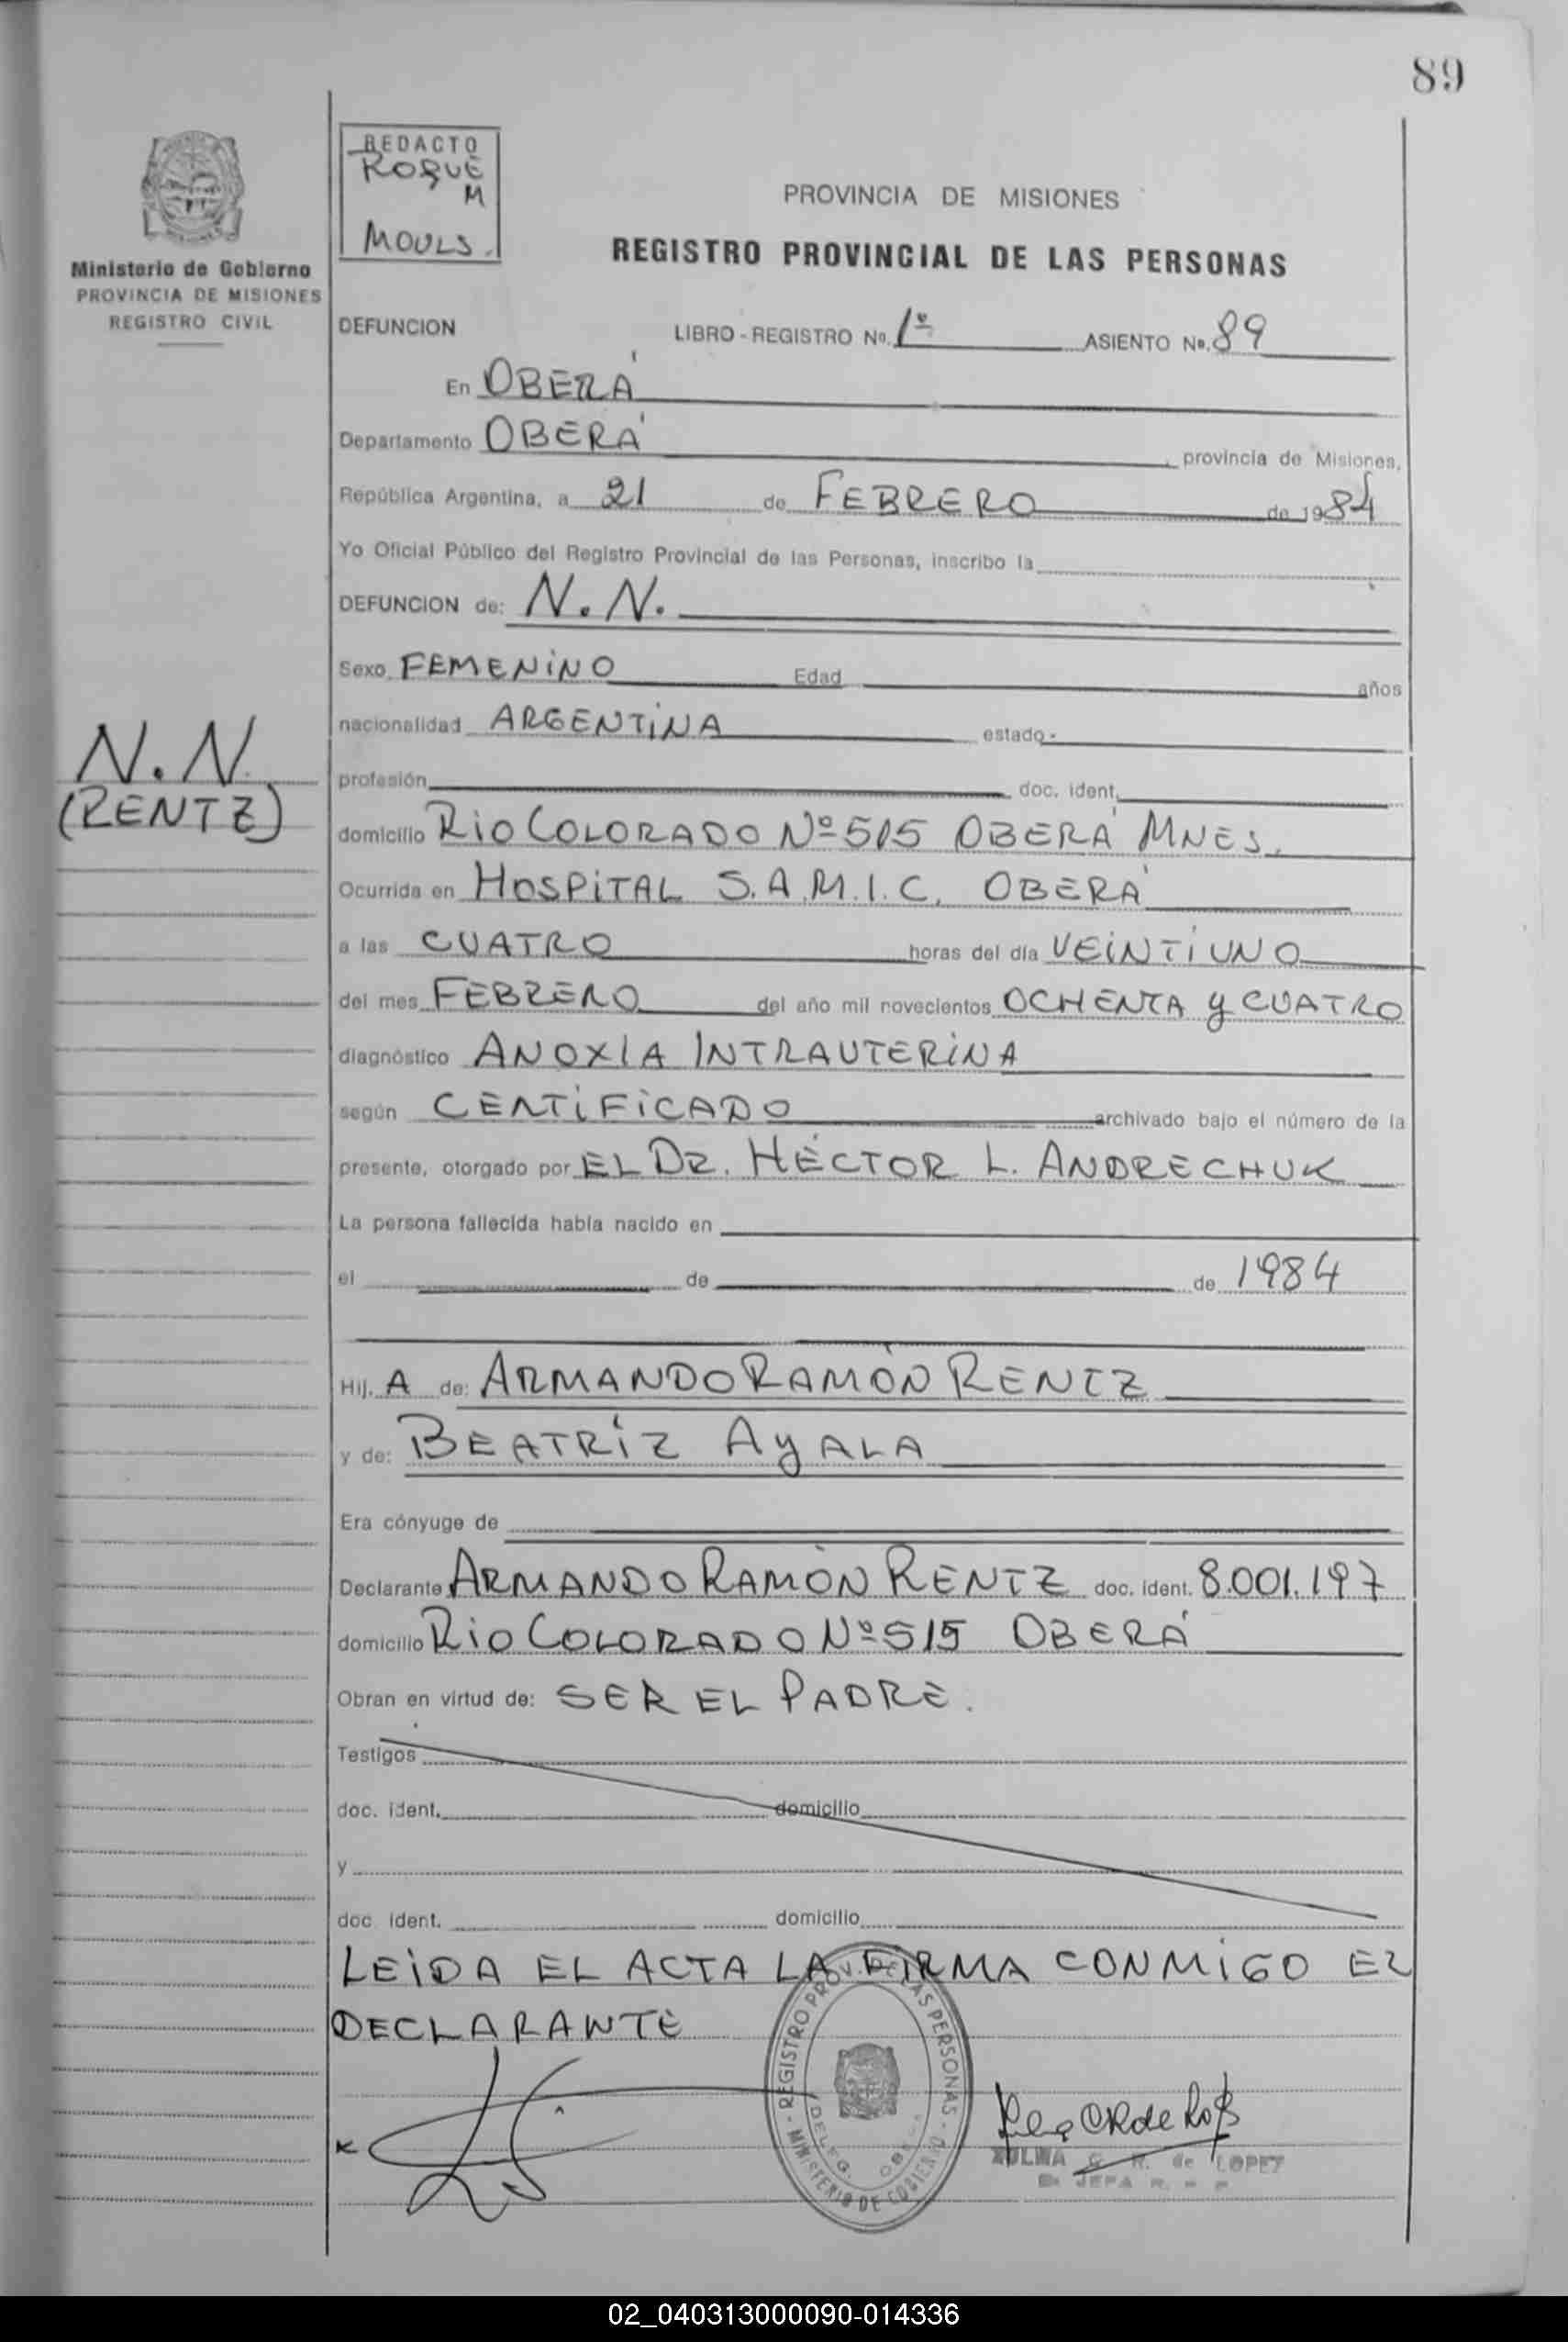 89
REDACTO
ROQUE
M
MOULS.
Ministerio de Gobierno
PROVINCIA DE MISIONES
REGISTRO CIVIL
PROVINCIA DE MISIONES
REGISTRO PROVINCIAL DE LAS PERSONAS
DEFUNCION LIBRO - REGISTRO No. 1º ASIENTO No. 89
En OBERÁ
Departamento OBERÁ, provincia de Misiones,
República Argentina, a 21 de FEBRERO de 1984
Yo Oficial Público del Registro Provincial de las Personas, inscribo la
DEFUNCION de: N.N.
Sexo FEMENINO Edad años
nacionalidad ARGENTINA estado
N.N.
(RENTZ)
profesión doc. ident.
domicilio RIO COLORADO Nº 515 OBERÁ MNES.
Ocurrida en HOSPITAL S.A.M.I.C. OBERÁ
a las CUATRO horas del día VEINTIUNO
del mes FEBRERO del año mil novecientos OCHENTA y CUATRO
diagnóstico ANOXIA INTRAUTERINA
según CERTIFICADO archivado bajo el número de la
presente, otorgado por EL DR. HÉCTOR L. ANDRECHUK
La persona fallecida había nacido en
el de de 1984
Hij. A de: ARMANDO RAMÓN RENTZ
y de: BEATRÍZ AYALA
Era cónyuge de
Declarante ARMANDO RAMÓN RENTZ doc. ident. 8.001.197
domicilio RIO COLORADO Nº 515 OBERÁ
Obran en virtud de: SER EL PADRE.
Testigos
doc. ident. domicilio
y
doc. ident. domicilio
LEIDA EL ACTA LA FIRMA CONMIGO EL
DECLARANTE
REGISTRO PROV. DE LAS PERSONAS
MINISTERIO DE GOBIERNO
DELEG.
ZULMA G. R. de LOPEZ
JEFA
02_040313000090-014336